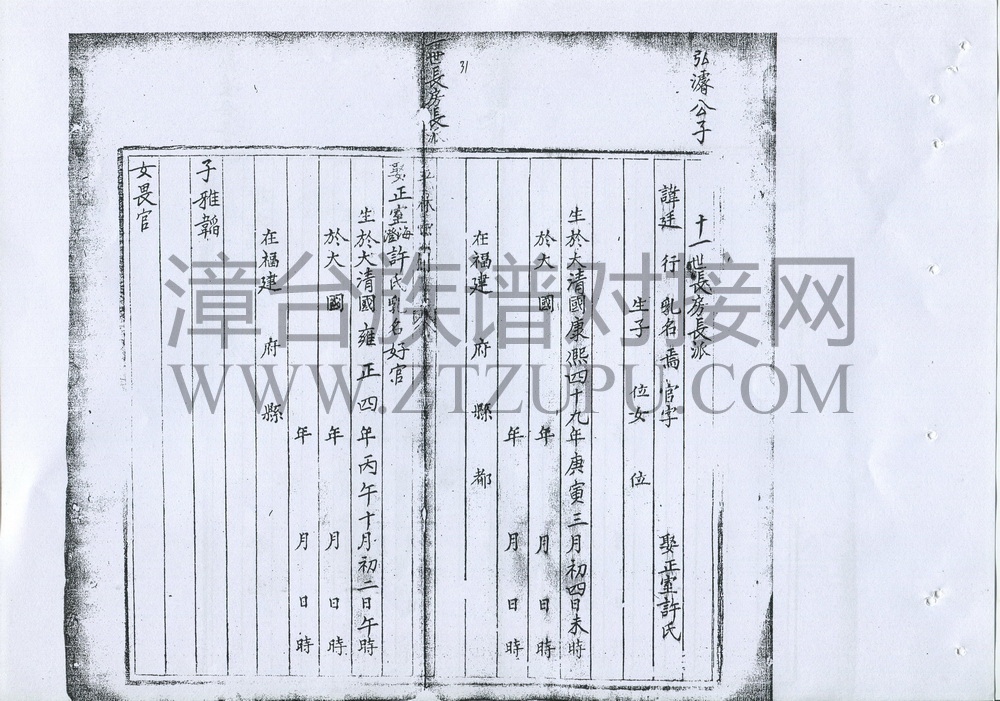 弘濬公子
十一世長房長派
諱廷 行 乳名焉官字 娶正室許氏
生子 位女 位
生於大清國康熙四十九年庚寅三月初四日未時
於大 國 年 月 日 時
年 月 日 時
在福建 府 縣 都
世長房長派
31
娶正室海澄許氏乳名好官
生於大清國雍正四年丙午十月初二日午時
於大 國 年 月 日 時
年 月 日 時
在福建 府 縣
子雅韜
女畏官
漳台族谱对接网
WWW.ZTZUPU.COM